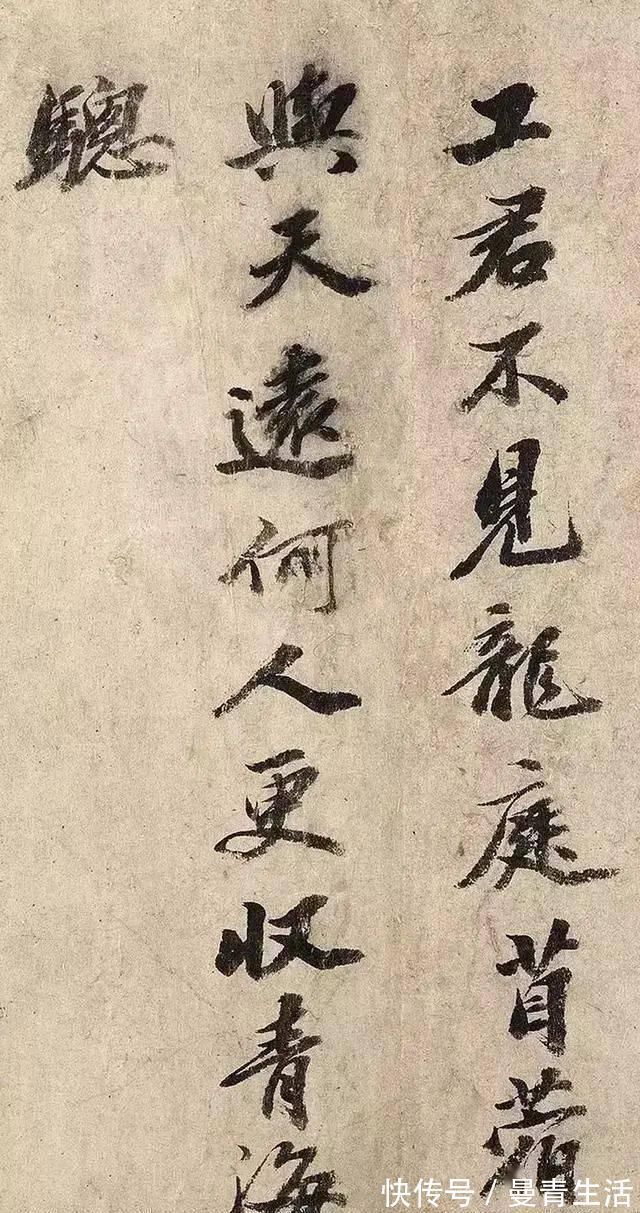 工君不見龍庭苜蓿
與天遠何人更收青海
驄
快传号／曼青生活